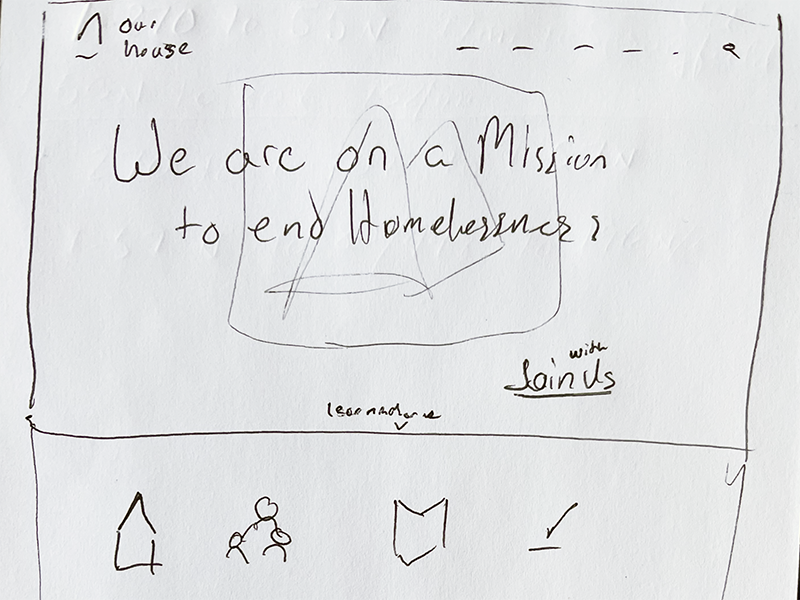 our
house
We are on a Mission
to end Homelessness
with
Join Us
learn more